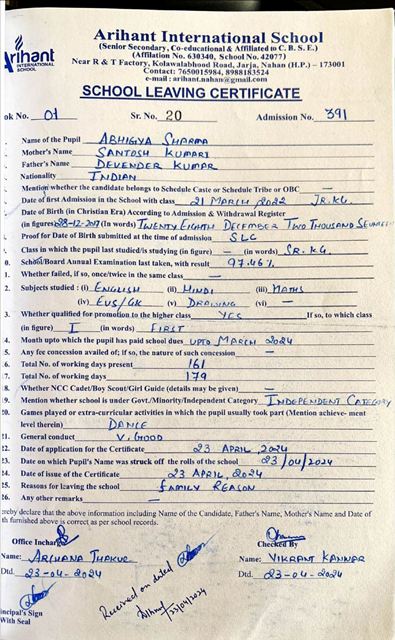 Arihant
INTERNATIONAL
SCHOOL
Arihant International School
(Senior Secondary, Co-educational & Affiliated to C. B. S. E.)
(Affiliation No. 630340, School No. 42077)
Near R & T Factory, Kolawalabhood Road, Jarja, Nahan (H.P.) – 173001
Contact: 7650015984, 8988183524
e-mail : arihant.nahan@gmail.com
SCHOOL LEAVING CERTIFICATE
ok No. 01 Sr. No. 20 Admission No. 391
Name of the Pupil ABHIGYA SHARMA
Mother's Name SANTOSH KUMARI
Father's Name DEVENDER KUMAR
Nationality INDIAN
Mention whether the candidate belongs to Schedule Caste or Schedule Tribe or OBC —
Date of first Admission in the School with class 21 MARCH 2022 JR.KG.
Date of Birth (in Christian Era) According to Admission & Withdrawal Register
(in figures) 28-12-2017 (In words) TWENTY EIGHTH DECEMBER TWO THOUSAND
Proof for Date of Birth submitted at the time of admission SLC
Class in which the pupil last studied/is studying (in figure) — (in words) SR. KG.
0. School/Board Annual Examination last taken, with result 97.46%
1. Whether failed, if so, once/twice in the same class —
2. Subjects studied : (i) ENGLISH (ii) HINDI (iii) MATHS
(iv) EVS/GK (v) DRAWING (vi) —
3. Whether qualified for promotion to the higher class YES If so, to which class
(in figure) I (in words) FIRST
4. Month upto which the pupil has paid school dues UPTO MARCH 2024
5. Any fee concession availed of; if so, the nature of such concession —
6. Total No. of working days present 161
7. Total No. of working days 179
8. Whether NCC Cadet/Boy Scout/Girl Guide (details may be given) —
9. Mention whether school is under Govt./Minority/Independent Category INDEPENDENT CATEGORY
20. Games played or extra-curricular activities in which the pupil usually took part (Mention achieve- ment
level therein) DANCE
21. General conduct V. GOOD
22. Date of application for the Certificate 23 APRIL, 2024
23. Date on which Pupil's Name was struck off the rolls of the school 23/04/2024
24. Date of issue of the Certificate 23 APRIL, 2024
25. Reasons for leaving the school FAMILY REASON
26. Any other remarks —
ereby declare that the above information including Name of the Candidate, Father's Name, Mother's Name and Date of
th furnished above is correct as per school records.
Office Incharge Checked By
Name: ARCHANA THAKUR Name: VIKRANT KANWAR
Dtd. 23-04-2024 Dtd. 23-04-2024
Received on dated
23/04/2024
incipal's Sign
With Seal